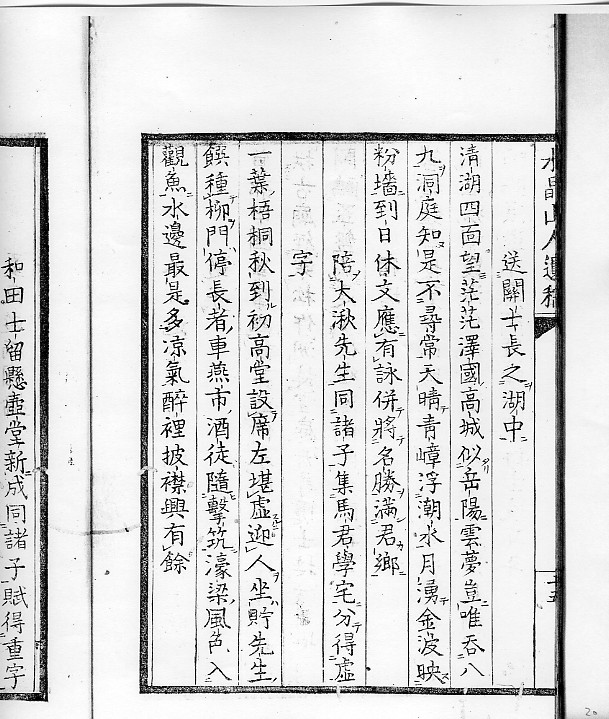 水晶山人遺稿
送關士長之湖中
清湖四面望茫茫澤國高城似岳陽雲夢豈唯吞八
九洞庭知是不尋常天晴青嶂浮潮水月湧金波映
粉墻到日休文應有詠併將名勝滿君鄉
陪大湫先生同諸子集馬君學宅分得虛
字
一葉梧桐秋到初高堂設席左堪虛迎人坐貯先生
饌種柳門停長者車燕市酒徒隨擊筑濠梁風色入
觀魚水邊最是多凉氣醉裡披襟興有餘
和田士留懸壺堂新成同諸子賦得重字
20